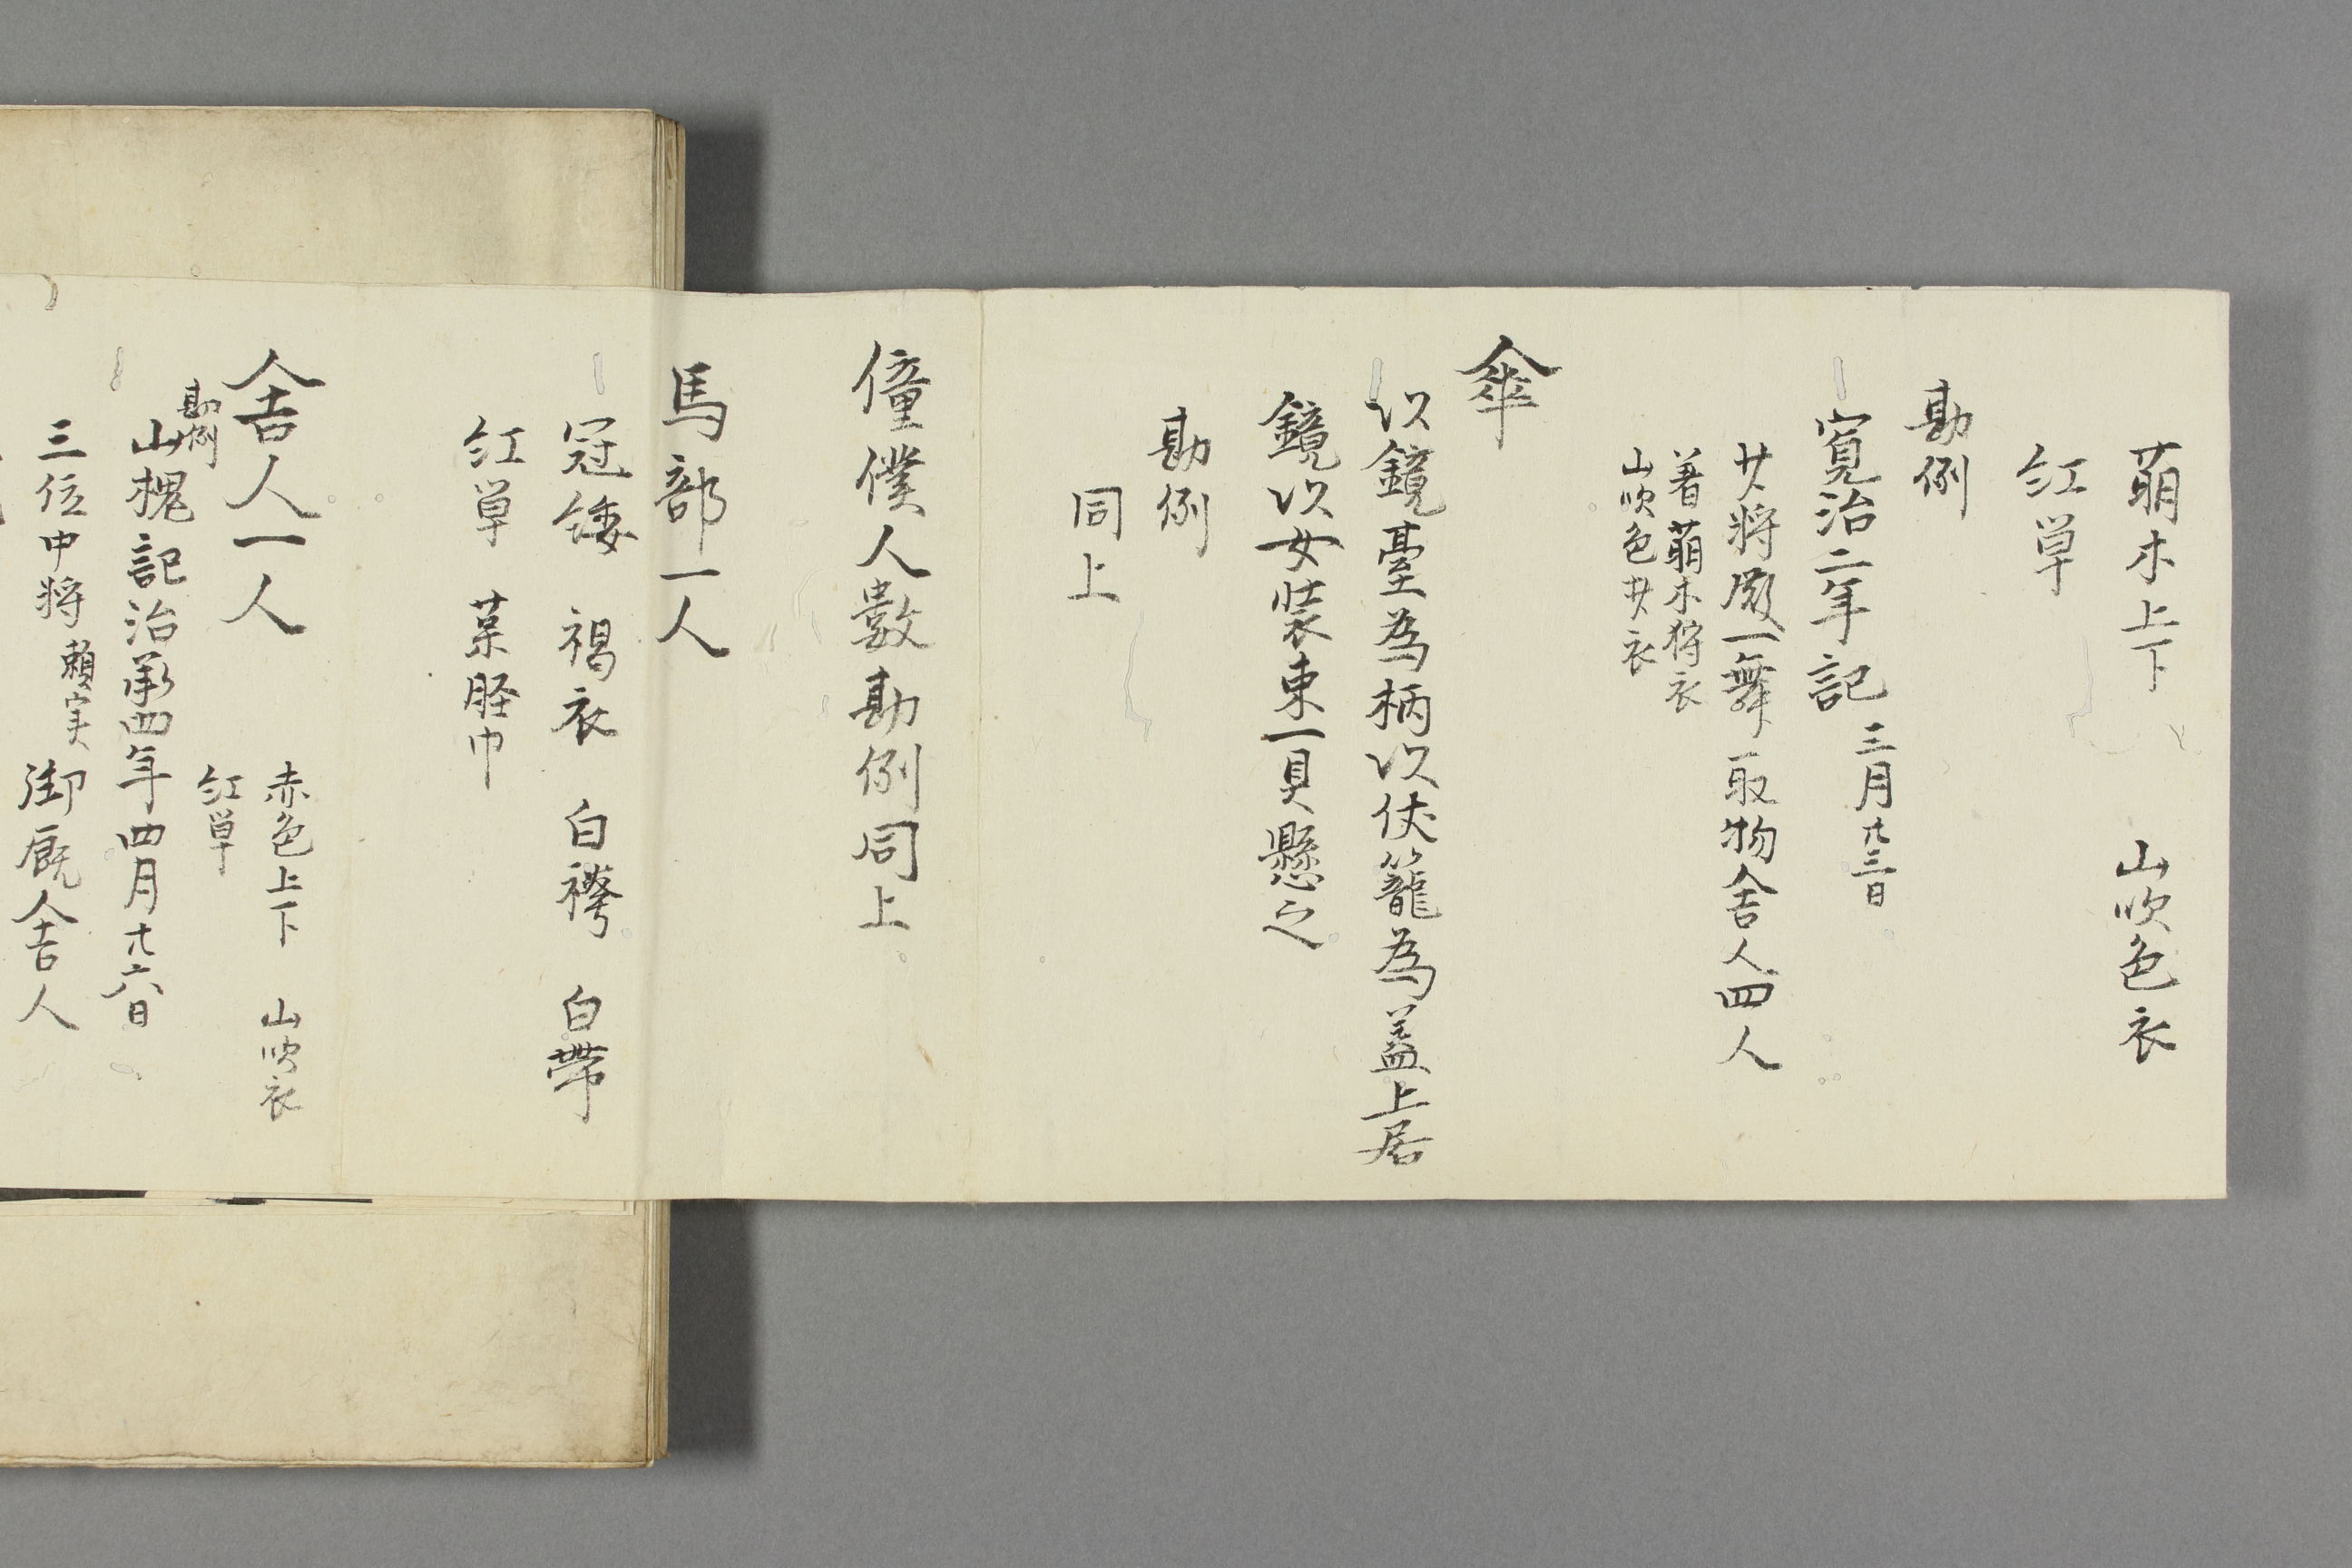 萌木上下　山吹色衣
紅単
勘例
寛治二年記三月廿三日
廾将殿一舞取物舎人四人
著萌木狩衣
山吹色廾衣
傘
以鏡臺為柄以伏籠為盖上居
鏡以女装束一具懸之
勘例
同上
僮僕人数勘例同上
馬部一人
冠緌　褐衣　白襷　白帯
紅単　葉脛巾
舎人一人
赤色上下　山吹衣
紅単
勘例
山槐記治承四年四月廿六日
三位中将頼実　御厩舎人